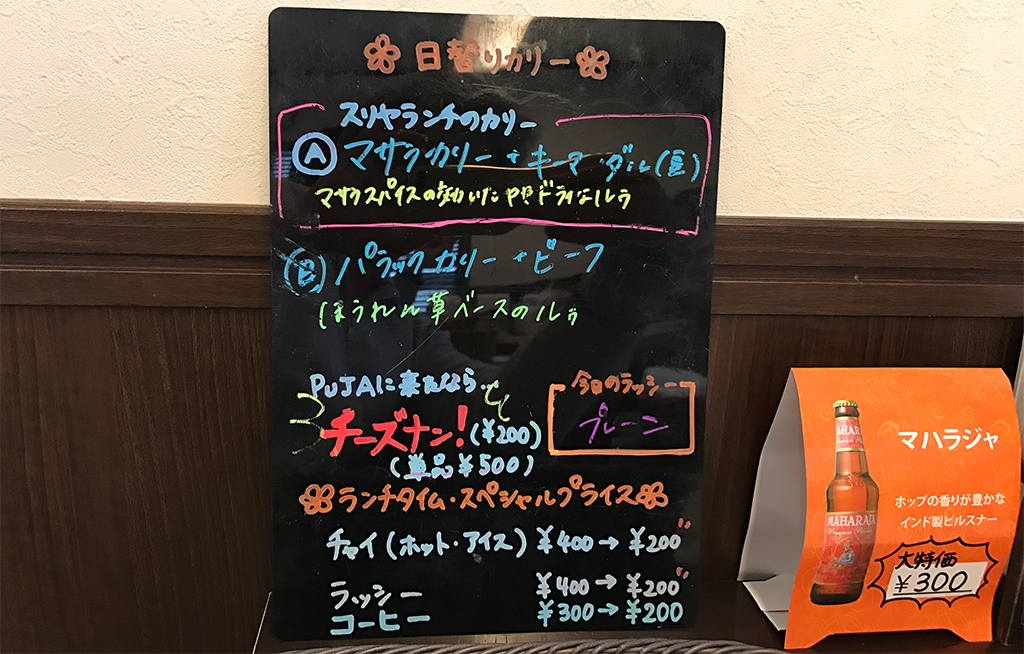 日替りカリー
スリヤランチのカリー
Ⓐ マサラカリー + キーマ・ダル(豆)
マサラスパイスの効いた ややドライなルゥ
Ⓑ パラックカリー + ビーフ
ほうれん草ベースのルゥ
PUJAに来たなら…
チーズナン!(¥200)
(単品¥500)
今日のラッシー
プレーン
ランチタイム・スペシャルプライス
チャイ(ホット・アイス) ¥400→¥200
ラッシー ¥400→¥200
コーヒー ¥300→¥200
マハラジャ
ホップの香りが豊かな
インド製ピルスナー
大特価
¥300
MAHARAJA
MAHARAJA